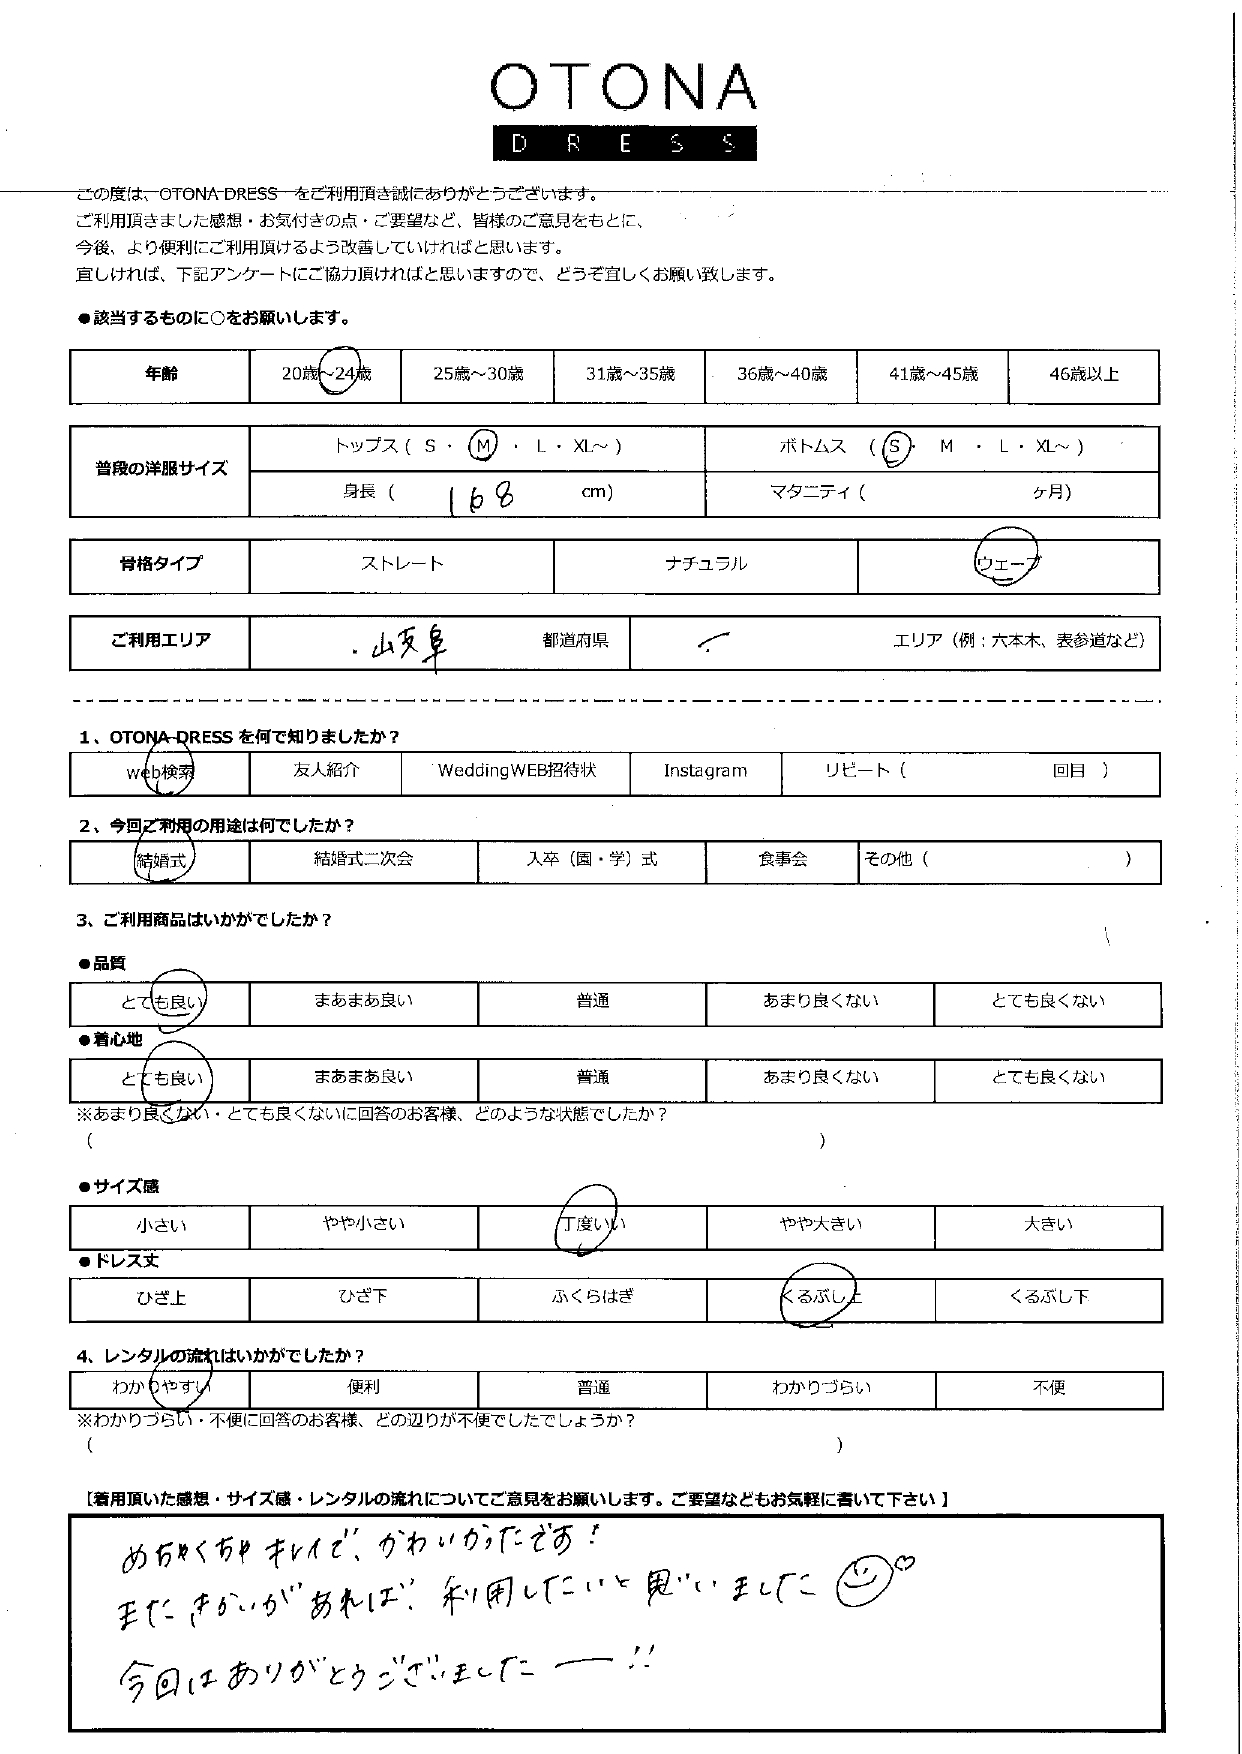 OTONA
DRESS
この度は、OTONA DRESS をご利用頂き誠にありがとうございます。
ご利用頂きました感想・お気付きの点・ご要望など、皆様のご意見をもとに、
今後、より便利にご利用頂けるよう改善していければと思います。
宜しければ、下記アンケートにご協力頂ければと思いますので、どうぞ宜しくお願い致します。
●該当するものに〇をお願いします。
年齢 20歳～24歳 25歳～30歳 31歳～35歳 36歳～40歳 41歳～45歳 46歳以上
普段の洋服サイズ トップス ( S ・ M ・ L ・ XL～ ) ボトムス ( S ・ M ・ L ・ XL～ )
身長 ( 168 cm) マタニティ ( ヶ月)
骨格タイプ ストレート ナチュラル ウェーブ
ご利用エリア 岐阜 都道府県 エリア（例：六本木、表参道など）
1、OTONA DRESS を何で知りましたか？
web検索 友人紹介 WeddingWEB招待状 Instagram リピート ( 回目 )
2、今回ご利用の用途は何でしたか？
結婚式 結婚式二次会 入卒（園・学）式 食事会 その他 ( )
3、ご利用商品はいかがでしたか？
●品質
とても良い まあまあ良い 普通 あまり良くない とても良くない
●着心地
とても良い まあまあ良い 普通 あまり良くない とても良くない
※あまり良くない・とても良くないに回答のお客様、どのような状態でしたか？
( )
●サイズ感
小さい やや小さい 丁度いい やや大きい 大きい
●ドレス丈
ひざ上 ひざ下 ふくらはぎ くるぶし上 くるぶし下
4、レンタルの流れはいかがでしたか？
わかりやすい 便利 普通 わかりづらい 不便
※わかりづらい・不便に回答のお客様、どの辺りが不便でしたでしょうか？
( )
【着用頂いた感想・サイズ感・レンタルの流れについてご意見をお願いします。ご要望などもお気軽に書いて下さい 】
めちゃくちゃキレイで、かわいかったです！
またきかいがあれば、利用したいと思いました
今回はありがとうございましたー！！